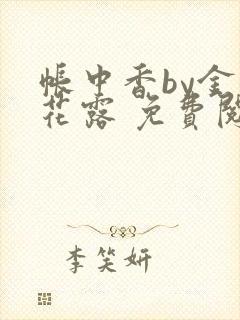 帳中香by金
花露 免費閱
李笑妍